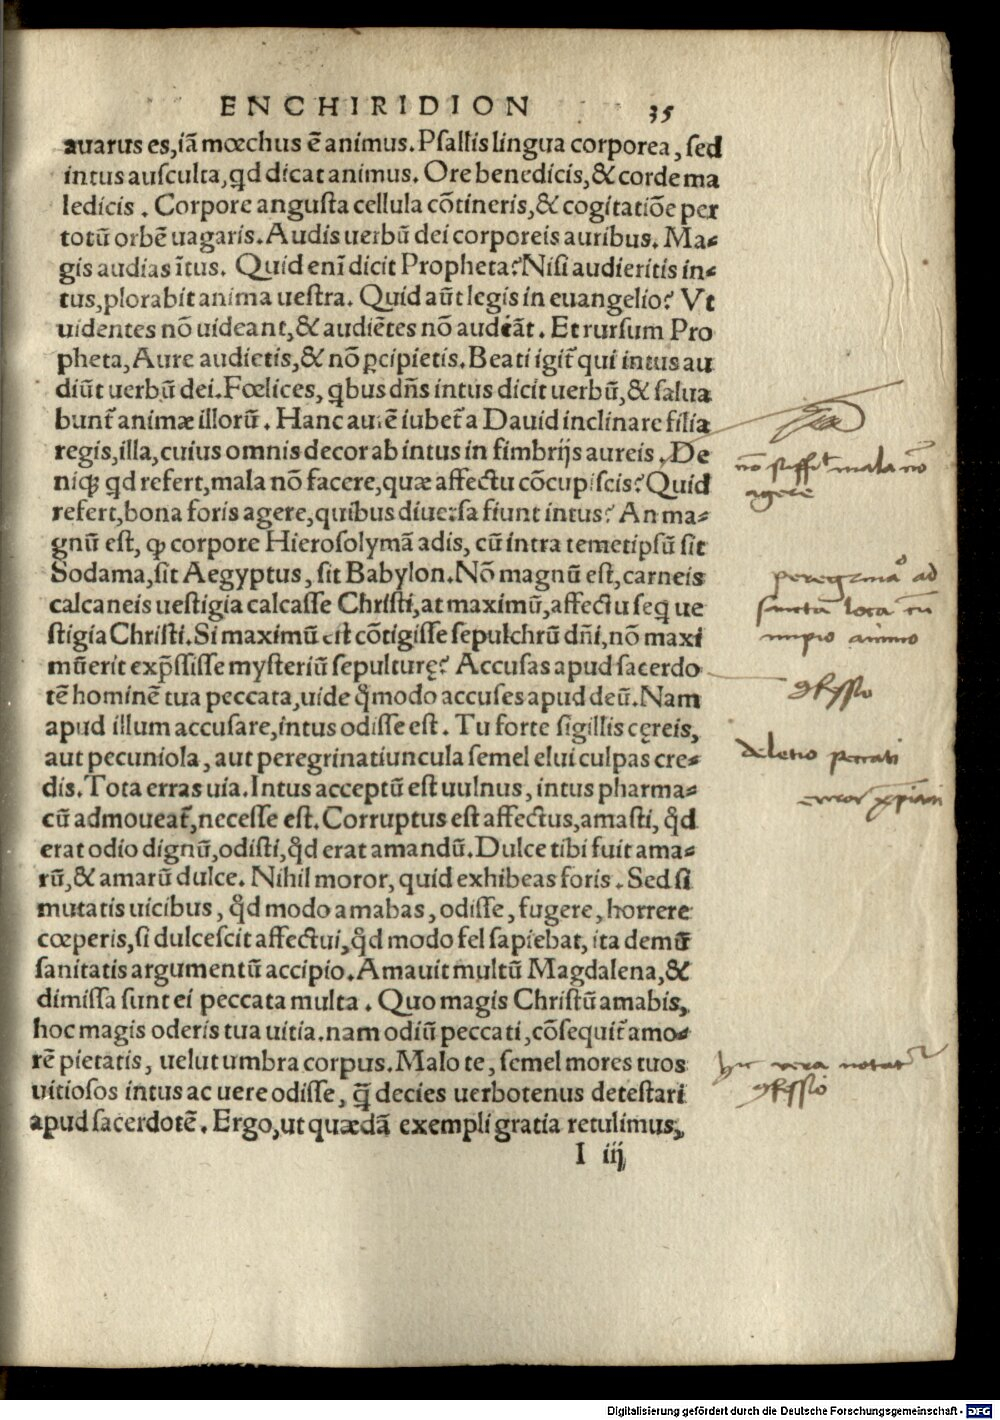 ENCHIRIDION 35
auarus es, iā mœchus ē animus. Psallis lingua corporea, sed
intus ausculta, qd dicat animus. Ore benedicis, & corde ma
ledicis . Corpore angusta cellula cōtineris, & cogitatiōe per
totū orbē uagaris. Audis uerbū dei corporeis auribus. Ma-
gis audias ītus. Quid enī dicit Propheta? Nisi audieritis in-
tus, plorabit anima uestra. Quid aūt legis in euangelio? Vt
uidentes nō uideant, & audiētes nō audiāt. Et rursum Pro
pheta, Aure audietis, & nō ꝑcipietis. Beati igit̄ qui intus au
diūt uerbū dei. Fœlices, qbus dn̄s intus dicit uerbū, & salua
bunt̄ animæ illorū. Hanc aurē iubet̄ a Dauid inclinare filia
regis, illa, cuius omnis decor ab intus in fimbrijs aureis. De
niqꝫ qd refert, mala nō facere, quæ affectu cōcupiscis? Quid
refert, bona foris agere, quibus diuersa fiunt intus? An ma-
gnū est, ꝙ corpore Hierosolymā adis, cū intra temetipsū sit
Sodama, sit Aegyptus, sit Babylon. Nō magnū est, carneis
calcaneis uestigia calcasse Christi, at maximū, affectu seq ue
stigia Christi. Si maximū est cōtigisse sepulchrū dn̄i, nō maxi
mū erit exp̄ssisse mysteriū sepulturę? Accusas apud sacerdo
tē hominē tua peccata, uide qͦmodo accuses apud deū. Nam
apud illum accusare, intus odisse est. Tu forte sigillis cęreis,
aut pecuniola, aut peregrinatiuncula semel elui culpas cre-
dis. Tota erras uia. Intus acceptū est uulnus, intus pharma-
cū admoueat̄, necesse est. Corruptus est affectus, amasti, qͦd
erat odio dignū, odisti, qͦd erat amandū. Dulce tibi fuit ama-
rū, & amarū dulce. Nihil moror, quid exhibeas foris. Sed si
mutatis uicibus, qͦd modo amabas, odisse, fugere, horrere
cœperis, si dulcescit affectui, qͦd modo fel sapiebat, ita demū
sanitatis argumentū accipio. Amauit multū Magdalena, &
dimissa sunt ei peccata multa. Quo magis Christū amabis,
hoc magis oderis tua uitia. nam odiū peccati, cōsequit̄ amo-
rē pietatis, uelut umbra corpus. Malo te, semel mores tuos
uitiosos intus ac uere odisse, q̄ decies uerbotenus detestari
apud sacerdotē. Ergo, ut quædā exempli gratia retulimus,
I iij
nō suffit mala nō
agere
peregrinaº ad
sancta loca cū
impio animo
ɔfessio
deletio peccati
error xp̄iani
hic vera notatr
ɔfessio
Digitalisierung gefördert durch die Deutsche Forschungsgemeinschaft - DFG